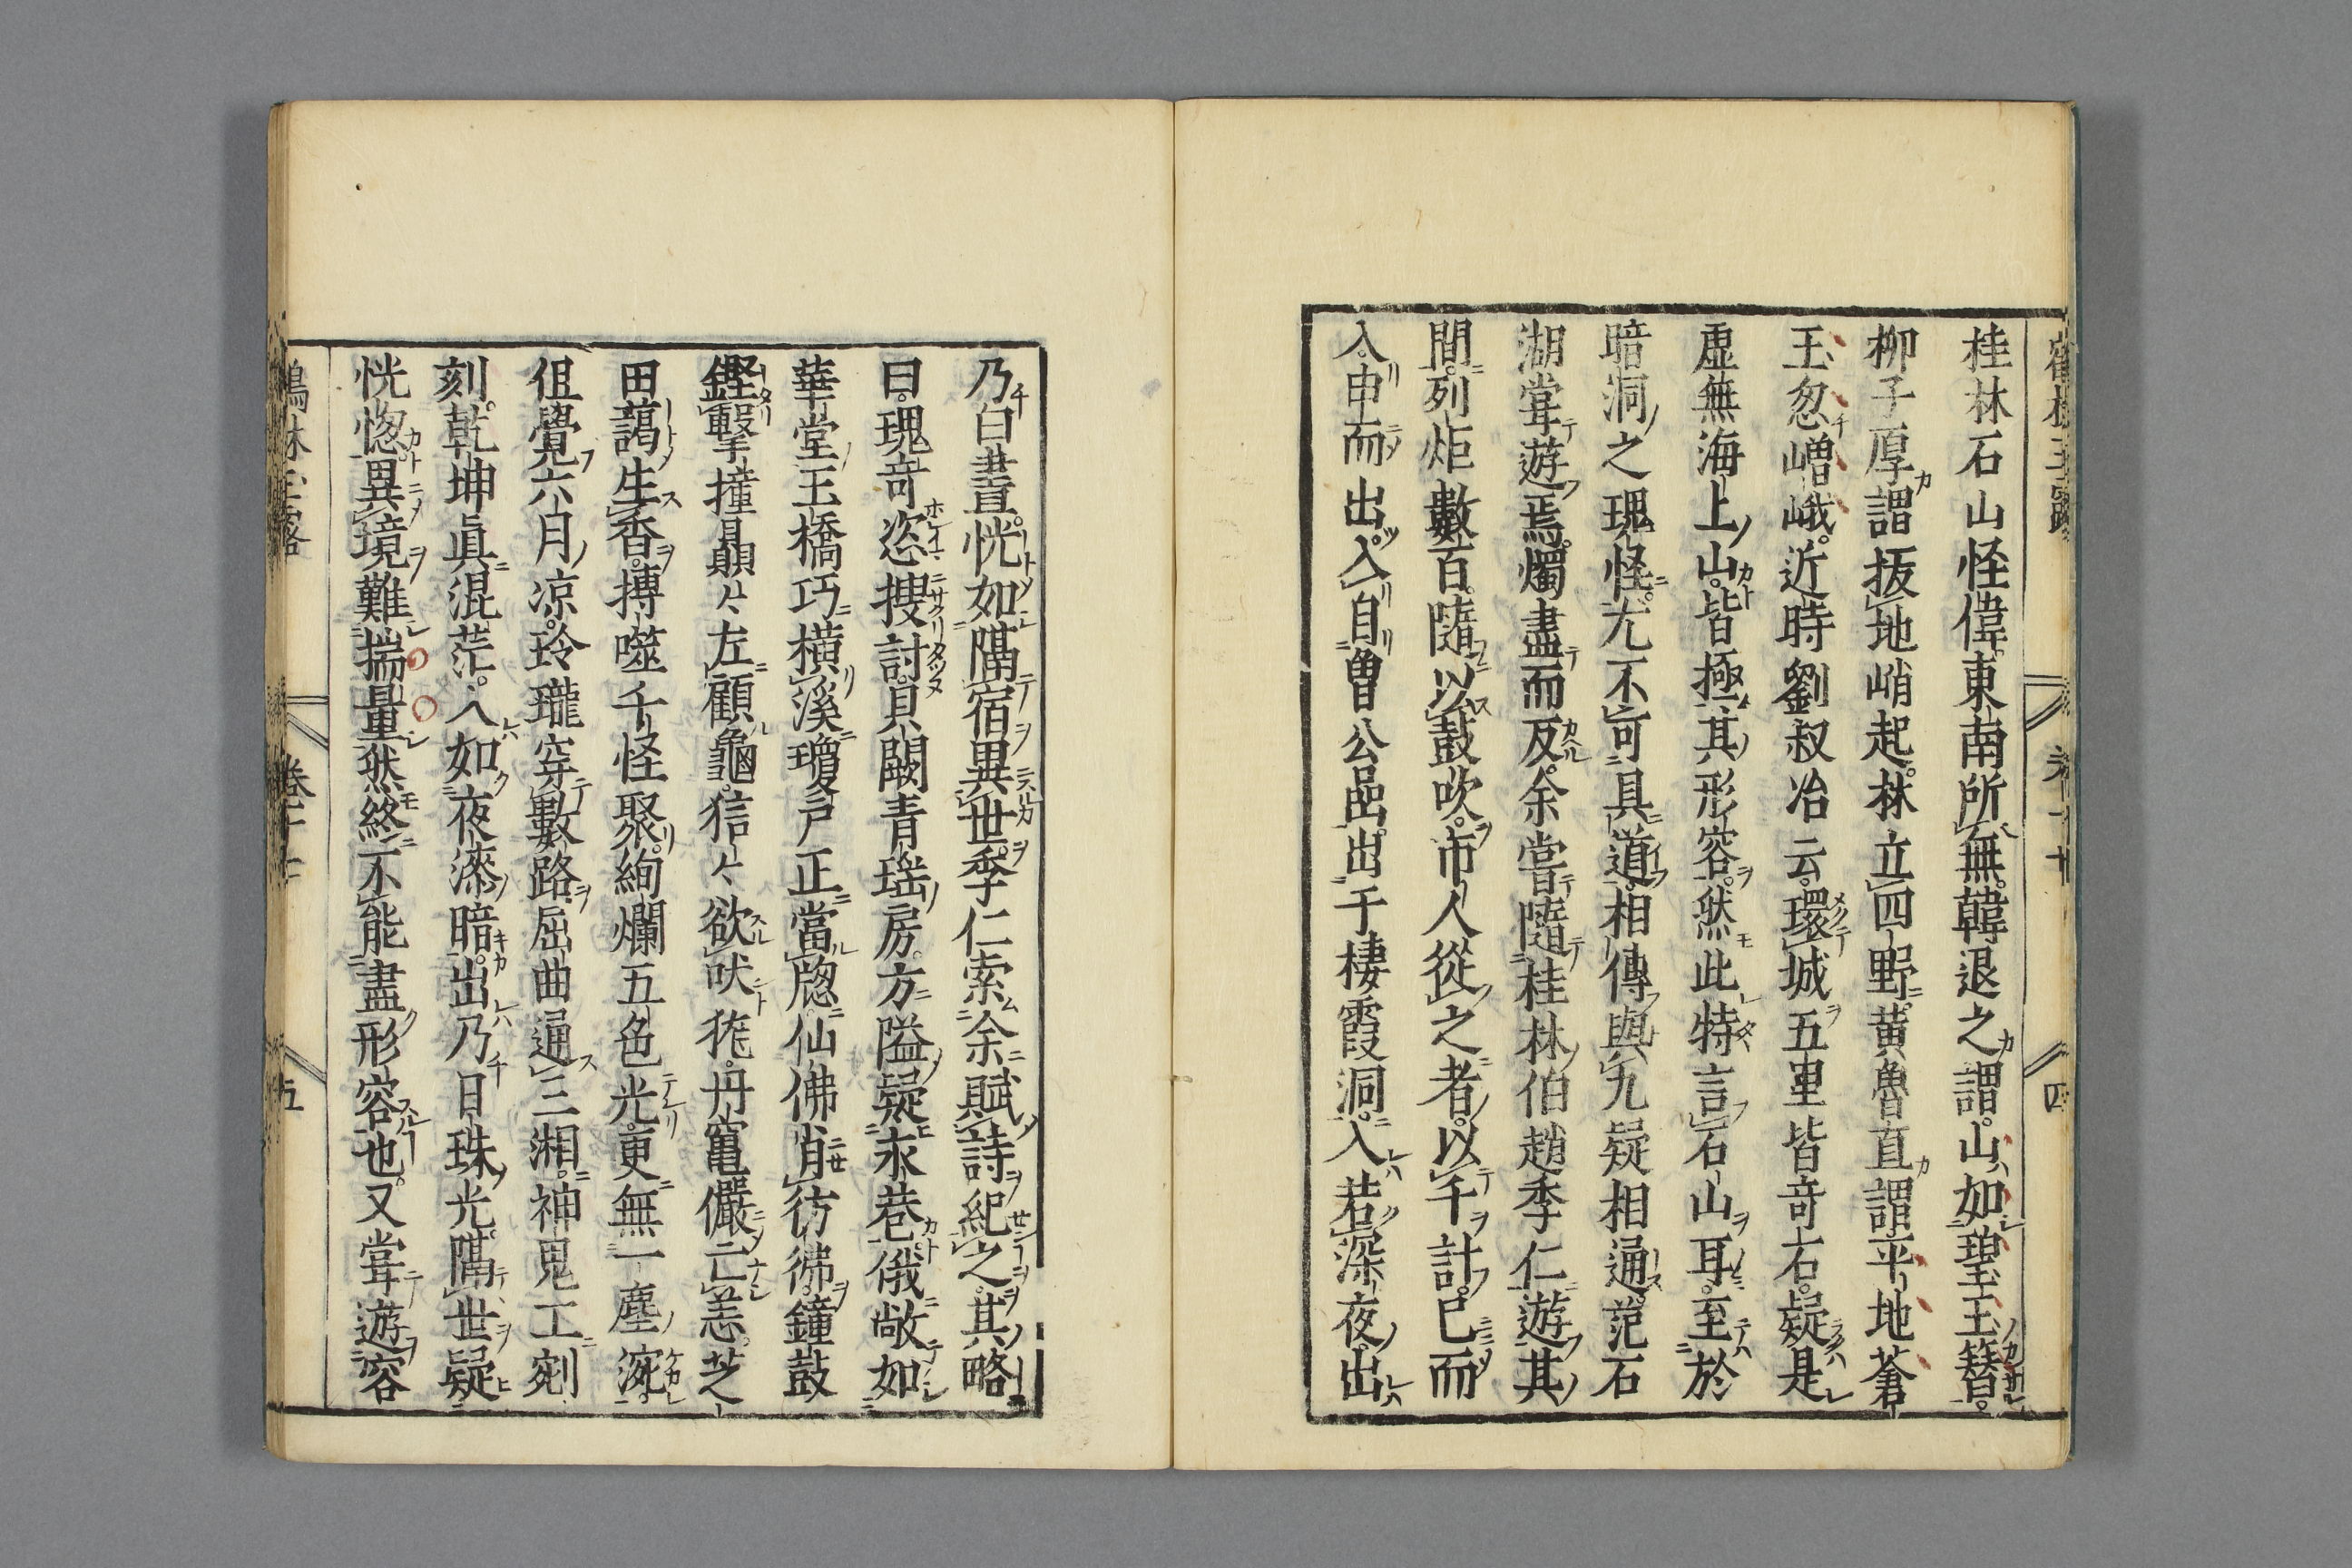 桂林石山怪偉。東南所無。韓退之謂。山如碧玉篸。
柳子厚謂拔地峭起。林立四野。黄魯直謂。平地蒼
玉忽嶒峨。近時劉叔冶云。環城五里皆奇石。疑是
虛無海上山。皆極其形容。然此特言石山耳。至於
暗洞之瑰怪。尤不可具道。相傳與九疑相通。范石
湖嘗遊焉。燭盡而反。余嘗隨桂林伯趙季仁遊其
間。列炬數百。隨以鼓吹。市人從之者。以千計。已而
入。申而出。入自曾公嵒。出千棲霞洞。入若深夜。出
乃白晝。恍如隔宿異世。季仁索余賦詩紀之。其略
曰。瑰奇恣搜討。貝闕青瑤房。方隘疑永巷。俄敞如
華堂。玉橋巧橫溪。瓊戶正當牕。仙佛肖彷彿。鐘鼓
鏗擊撞。贔々左顧龜。狺々欲吠狵。丹竈儼亡恙。芝
田藹生香。搏噬千怪聚。絢爛五色光。更無一塵涴。
但覺六月涼。玲瓏穿數路。屈曲通三湘。神鬼工剜
刻。乾坤眞混茫。入如夜漆暗。出乃日珠光。隔世疑
恍惚。異境難揣量。然終不能盡形容也。又嘗遊容
鶴林玉露
卷十七
四
五